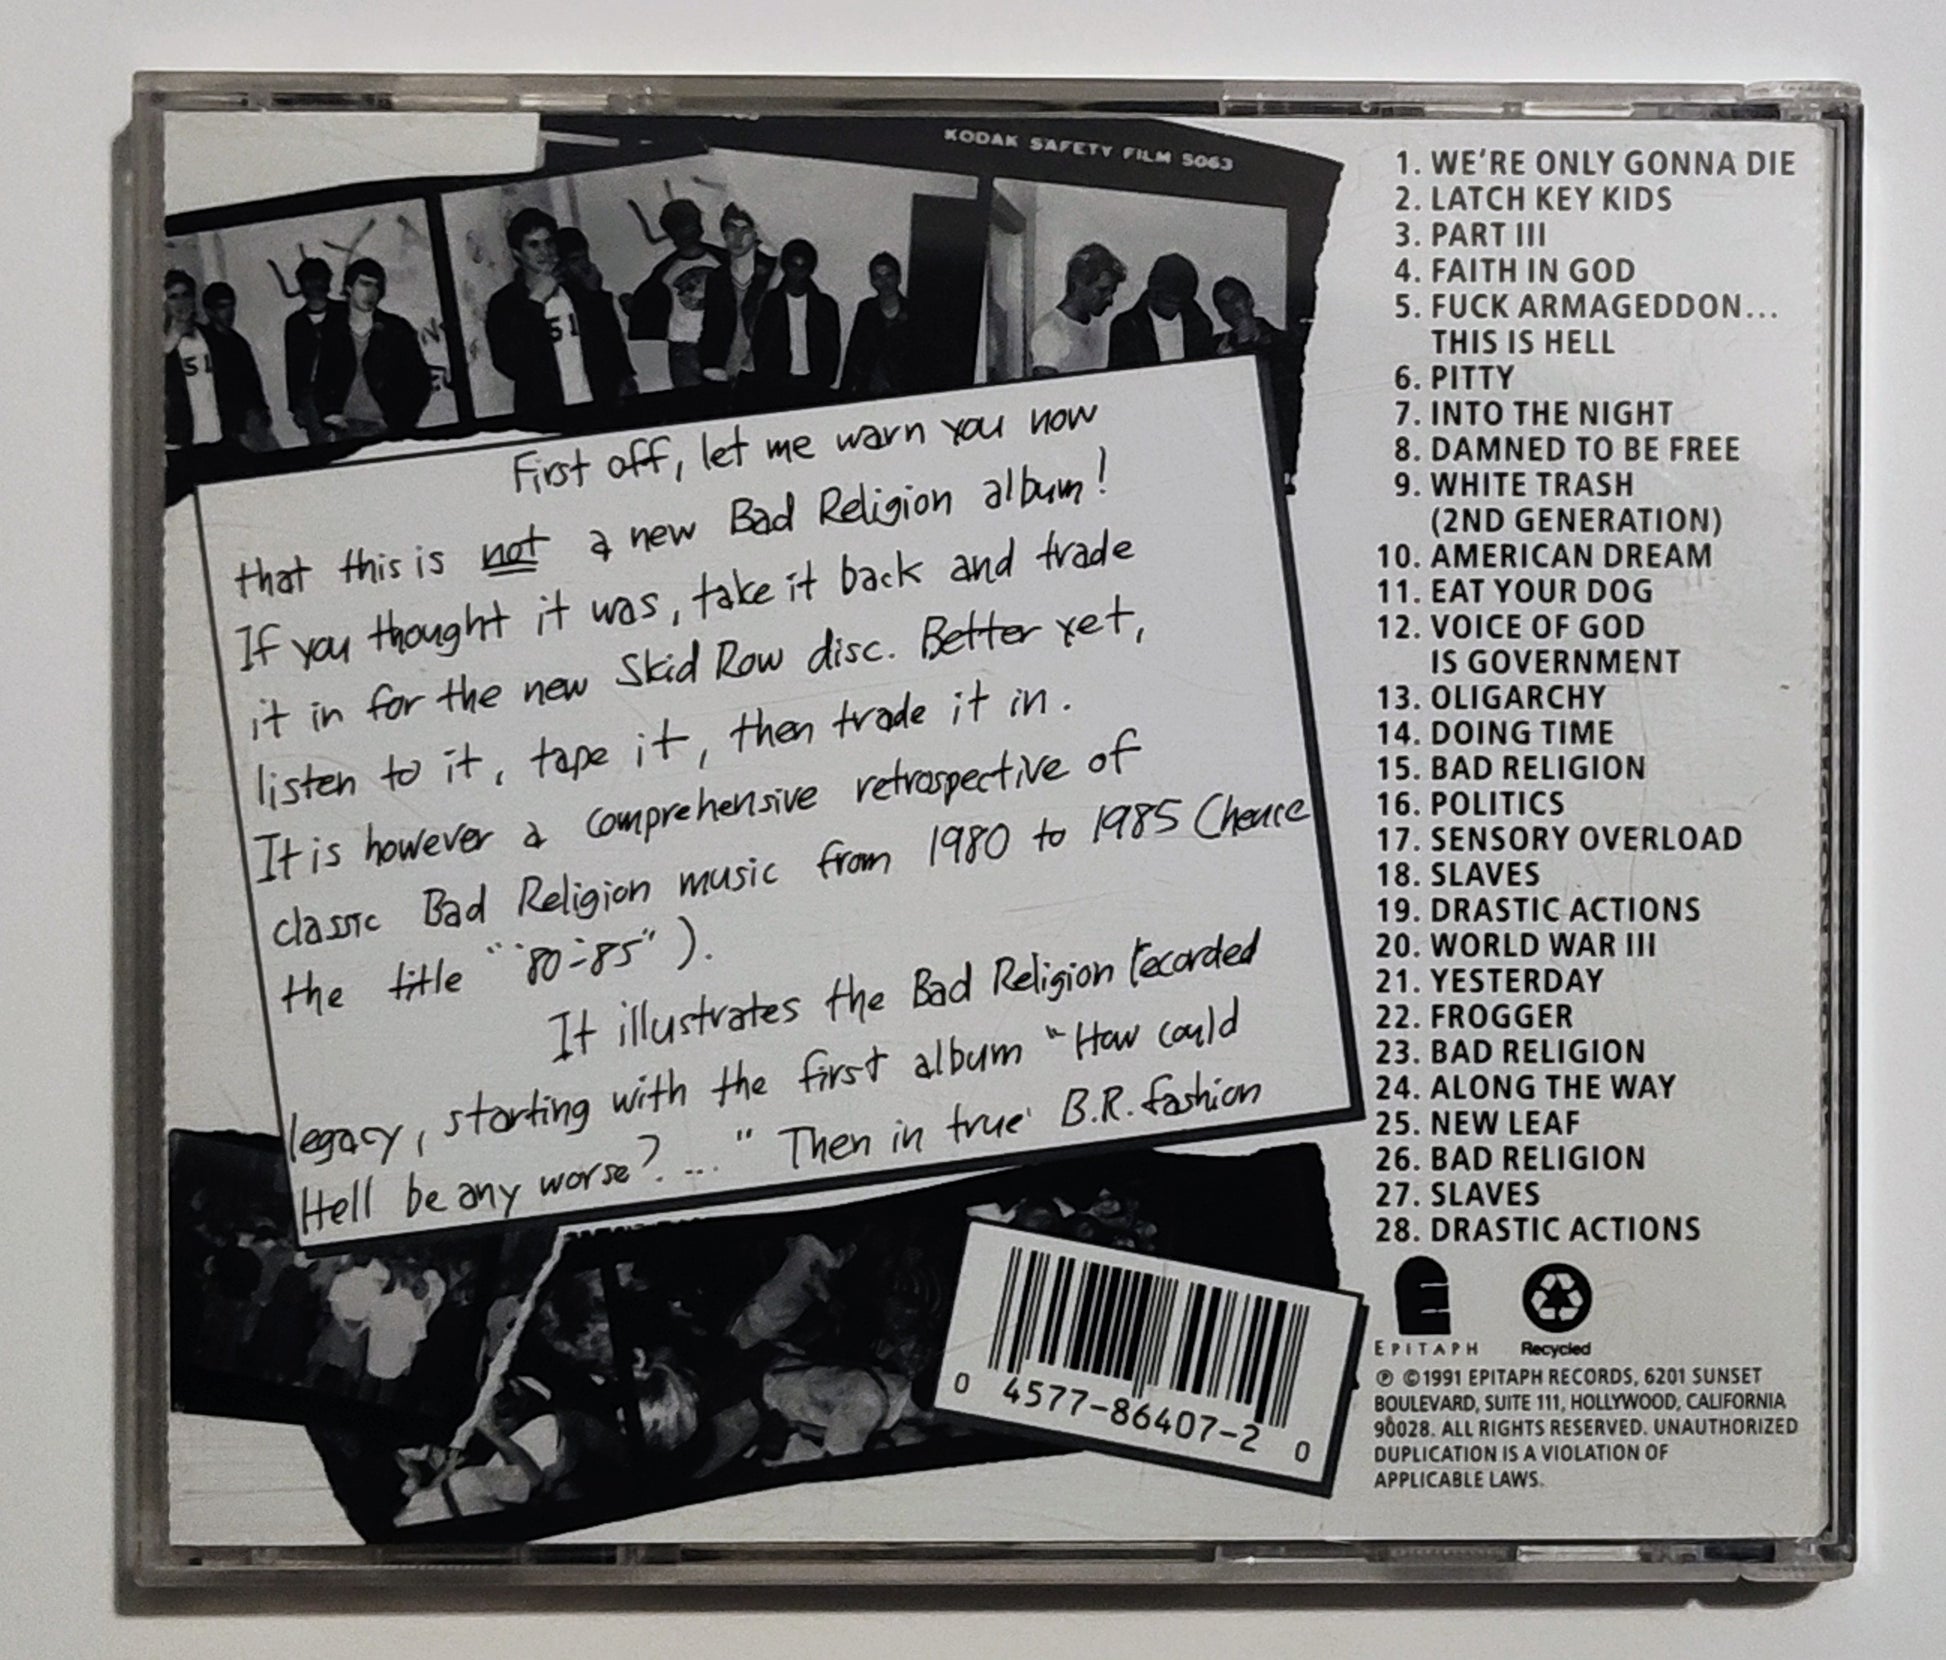 KODAK SAFETY FILM 5063
51
51
First off, let me warn you now
that this is not a new Bad Religion album!
If you thought it was, take it back and trade
it in for the new Skid Row disc. Better yet,
listen to it, tape it, then trade it in.
It is however a comprehensive retrospective of
classic Bad Religion music from 1980 to 1985 (hence
the title "'80-'85").
It illustrates the Bad Religion recorded
legacy, starting with the first album "How could
Hell be any worse?...." Then in true B.R. fashion
1. WE'RE ONLY GONNA DIE
2. LATCH KEY KIDS
3. PART III
4. FAITH IN GOD
5. FUCK ARMAGEDDON...
THIS IS HELL
6. PITTY
7. INTO THE NIGHT
8. DAMNED TO BE FREE
9. WHITE TRASH
(2ND GENERATION)
10. AMERICAN DREAM
11. EAT YOUR DOG
12. VOICE OF GOD
IS GOVERNMENT
13. OLIGARCHY
14. DOING TIME
15. BAD RELIGION
16. POLITICS
17. SENSORY OVERLOAD
18. SLAVES
19. DRASTIC ACTIONS
20. WORLD WAR III
21. YESTERDAY
22. FROGGER
23. BAD RELIGION
24. ALONG THE WAY
25. NEW LEAF
26. BAD RELIGION
27. SLAVES
28. DRASTIC ACTIONS
EPITAPH
Recycled
℗ ©1991 EPITAPH RECORDS, 6201 SUNSET
BOULEVARD, SUITE 111, HOLLYWOOD, CALIFORNIA
90028. ALL RIGHTS RESERVED. UNAUTHORIZED
DUPLICATION IS A VIOLATION OF
APPLICABLE LAWS.
0 4577-86407-2 0